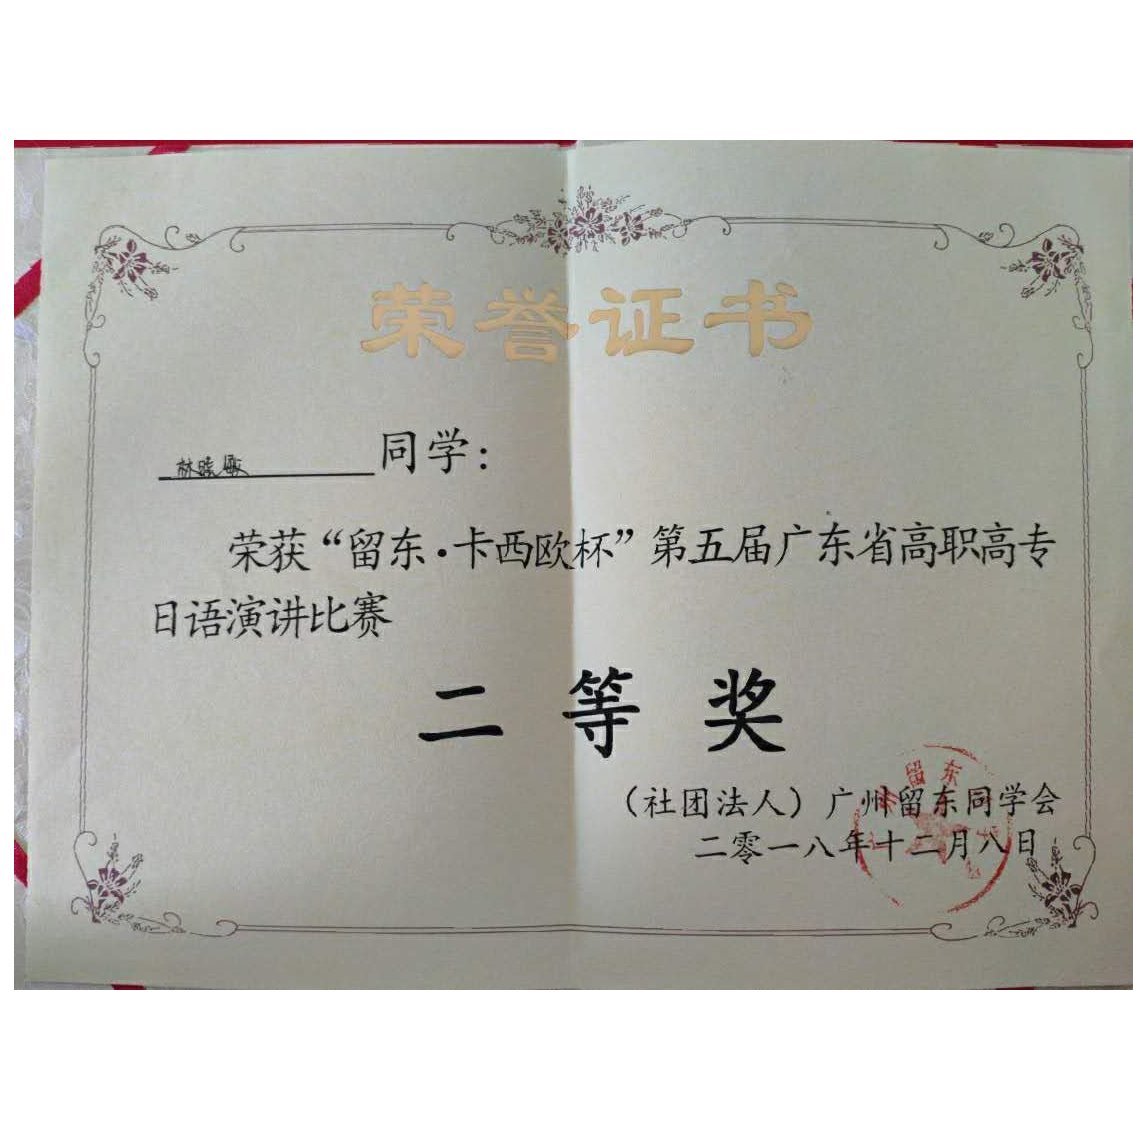 荣誉证书
林晓敏 同学：
荣获“留东·卡西欧杯”第五届广东省高职高专
日语演讲比赛
二等奖
（社团法人）广州留东同学会
二零一八年十二月八日
留东